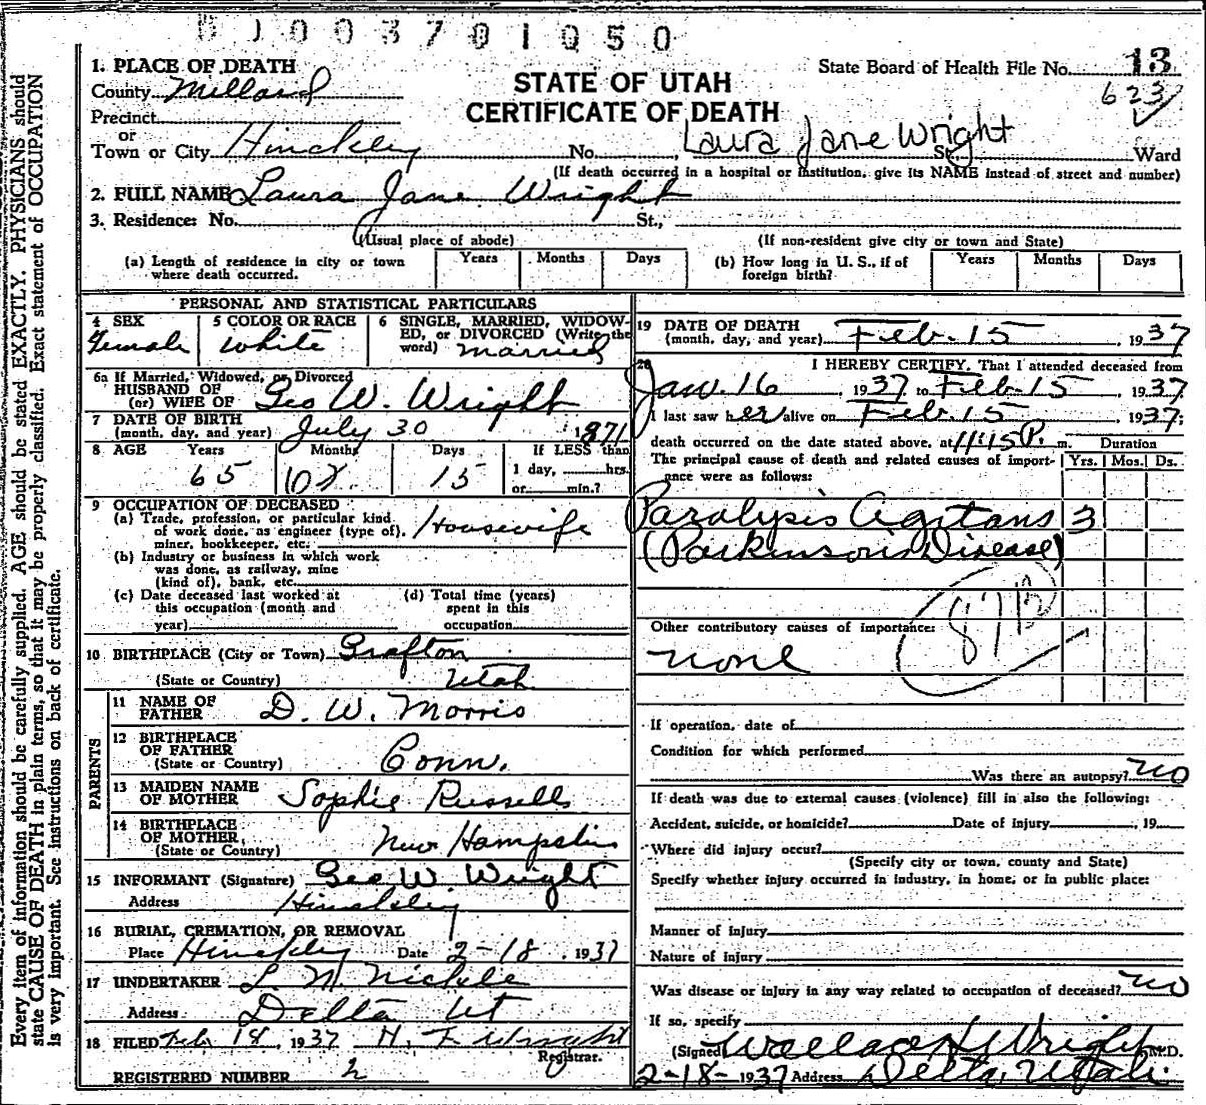 1. PLACE OF DEATH
County Millard
Precinct
or
Town or City Hinckley No. St. Ward
STATE OF UTAH
CERTIFICATE OF DEATH
State Board of Health File No. 13
623
Laura Jane Wright
(If death occurred in a hospital or institution, give its NAME instead of street and number)
2. FULL NAME Laura Jane Wright
3. Residence: No. St.,
(Usual place of abode) (If non-resident give city or town and State)
(a) Length of residence in city or town where death occurred. Years Months Days
(b) How long in U. S., if of foreign birth? Years Months Days
PERSONAL AND STATISTICAL PARTICULARS
4 SEX Female
5 COLOR OR RACE White
6 SINGLE, MARRIED, WIDOWED, or DIVORCED (Write the word) married
6a If Married, Widowed, or Divorced
HUSBAND OF
(or) WIFE OF Geo W. Wright
7 DATE OF BIRTH
(month, day, and year) July 30 1871
8 AGE Years 65 Months Days 15
If LESS than
1 day, hrs.
or min.?
9 OCCUPATION OF DECEASED
(a) Trade, profession, or particular kind of work done, as engineer (type of), miner, bookkeeper, etc. Housewife
(b) Industry or business in which work was done, as railway, mine (kind of), bank, etc.
(c) Date deceased last worked at this occupation (month and year)
(d) Total time (years) spent in this occupation
10 BIRTHPLACE (City or Town) Grafton
(State or Country) Utah
PARENTS
11 NAME OF FATHER D. W. Morris
12 BIRTHPLACE OF FATHER
(State or Country) Conn.
13 MAIDEN NAME OF MOTHER Sophie Russells
14 BIRTHPLACE OF MOTHER,
(State or Country) New Hampshire
15 INFORMANT (Signature) Geo W. Wright
Address Hinckley
16 BURIAL, CREMATION, OR REMOVAL
Place Hinckley Date 2-18, 1937
17 UNDERTAKER L. N. Nickle
Address Delta Ut
18 FILED Feb 18, 1937 H. F. Wright
Registrar.
REGISTERED NUMBER 2
19 DATE OF DEATH
(month, day, and year) Feb. 15, 1937
20 I HEREBY CERTIFY, That I attended deceased from
Jan. 16, 1937 to Feb 15, 1937
I last saw her alive on Feb. 15, 1937;
death occurred on the date stated above, at 11:15 P. m.
The principal cause of death and related causes of importance were as follows:
Duration
Yrs. Mos. Ds.
Paralysis Agitans 3
(Parkinson's Disease)
87B
Other contributory causes of importance:
none
If operation, date of
Condition for which performed
Was there an autopsy? no
If death was due to external causes (violence) fill in also the following:
Accident, suicide, or homicide? Date of injury, 19
Where did injury occur?
(Specify city or town, county and State)
Specify whether injury occurred in industry, in home, or in public place:
Manner of injury
Nature of injury
Was disease or injury in any way related to occupation of deceased? no
If so, specify
(Signed) Wallace H Wright M.D.
2-18-1937 Address Delta, Utah.
Every item of information should be carefully supplied. AGE should be stated EXACTLY. PHYSICIANS should
state CAUSE OF DEATH in plain terms, so that it may be properly classified. Exact statement of OCCUPATION
is very important. See instructions on back of certificate.